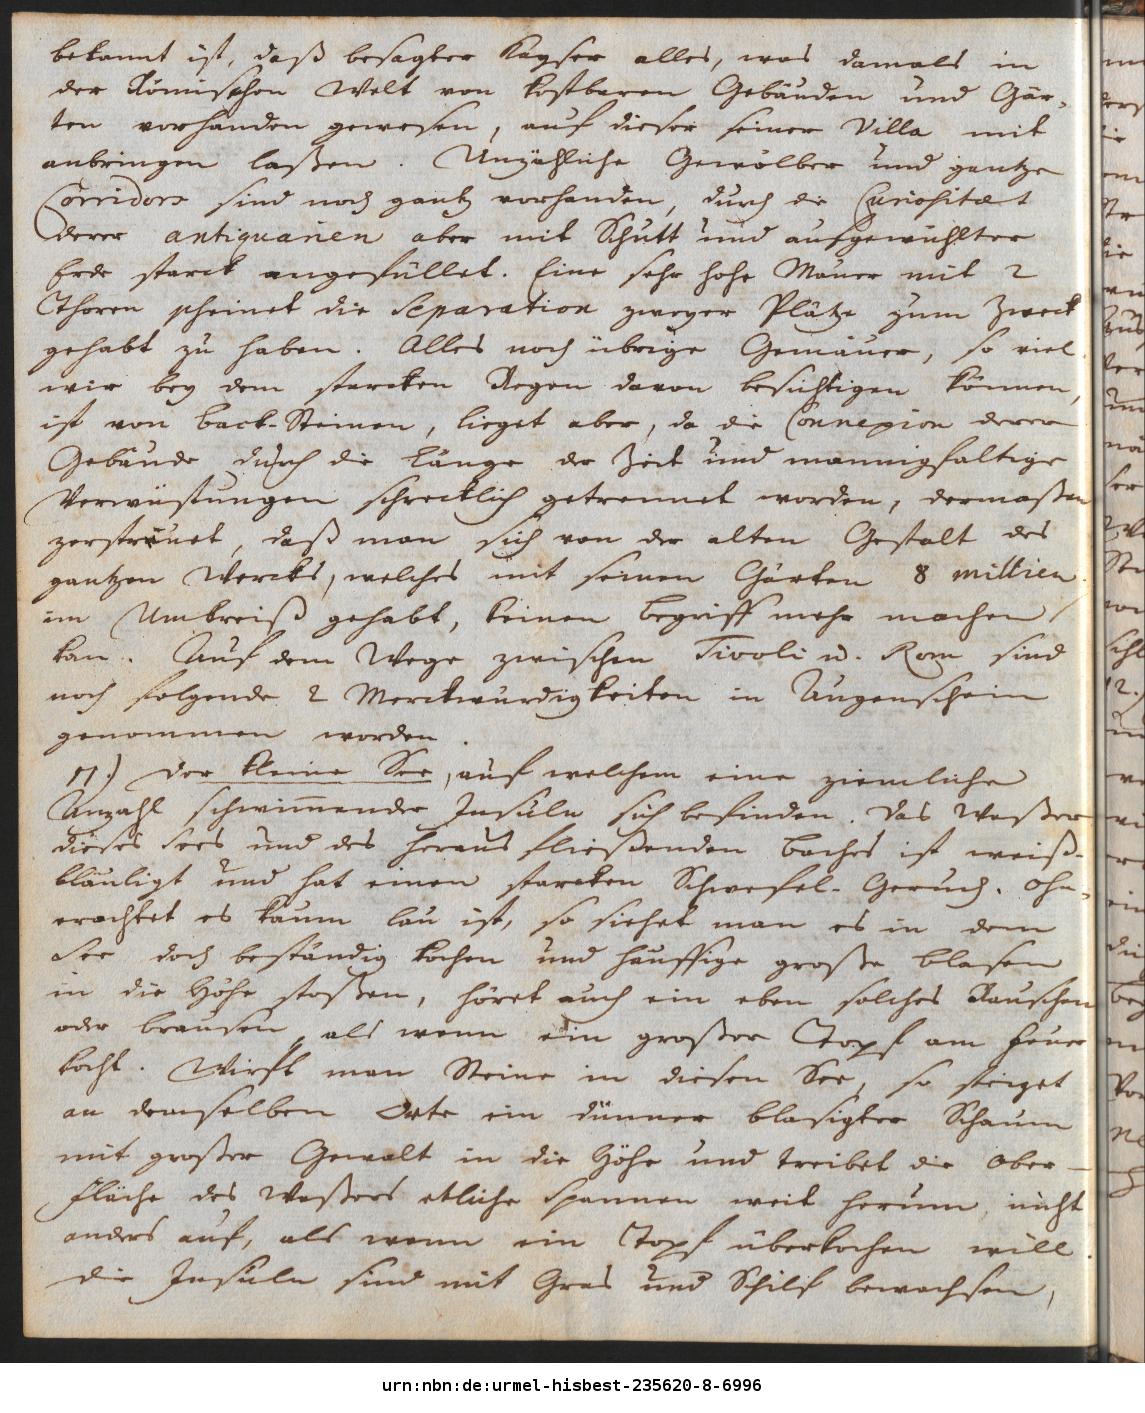 bekannt ist, daß besagter Kayser alles, was damals in
der Römischen Welt von kostbaren Gebäuden und Gär-
ten vorhanden gewesen, auf dieser seiner Villa mit
anbringen laßen. Unzähliche Gewölber und gantze
Corridors sind noch gantz vorhanden, durch die Curiosität
derer antiquarien aber mit Schutt und aufgewühlter
Erde starck angefüllet. Eine sehr hohe Mauer mit 2
Thoren scheinet die Separation zweyer Plätze zum Zweck
gehabt zu haben. Alles noch übrige Gemäuer, so viel
wir bey dem starcken Regen davon besichtigen können,
ist von back-Steinen, lieget aber, da die Connexion derer
Gebäude durch die Länge der Zeit und mannigfaltige
Verwüstungen schrecklich getrennet worden, dermaßen
zerstreuet, daß man sich von der alten Gestalt des
gantzen Wercks, welches mit seinen Gärten 8 millien
im Umkreiß gehabt, keinen begriff mehr machen
kan. Auf dem Wege zwischen Tivoli u. Rom sind
noch folgende 2 Merckwürdigkeiten in Augenschein
genommen worden.
der kleine See, auf welchem eine ziemliche
Anzahl schwimmender Insuln sich befinden. Das Waßer
dieses Sees und des heraus fließenden baches ist weiß-
bläuligt und hat einen starcken Schwefel-Geruch. Ohn-
erachtet es kaum lau ist, so siehet man es in dem
See doch beständig kochen und häuffige große blasen
in die Höhe stoßen, höret auch ein eben solches Rauschen
oder brausen, als wenn ein großer Topf am feuer
kocht. Wirft man Steine in diesen See, so steiget
an demselben Orte ein dünner blasigter Schaum
mit großer Gewalt in die Höhe und treibet die Ober-
fläche des Waßers etliche Spannen weit herum, nicht
anders auf, als wenn ein Topf überkochen will.
die Insuln sind mit Gras und Schilf bewachsen,
urn:nbn:de:urmel-hisbest-235620-8-6996